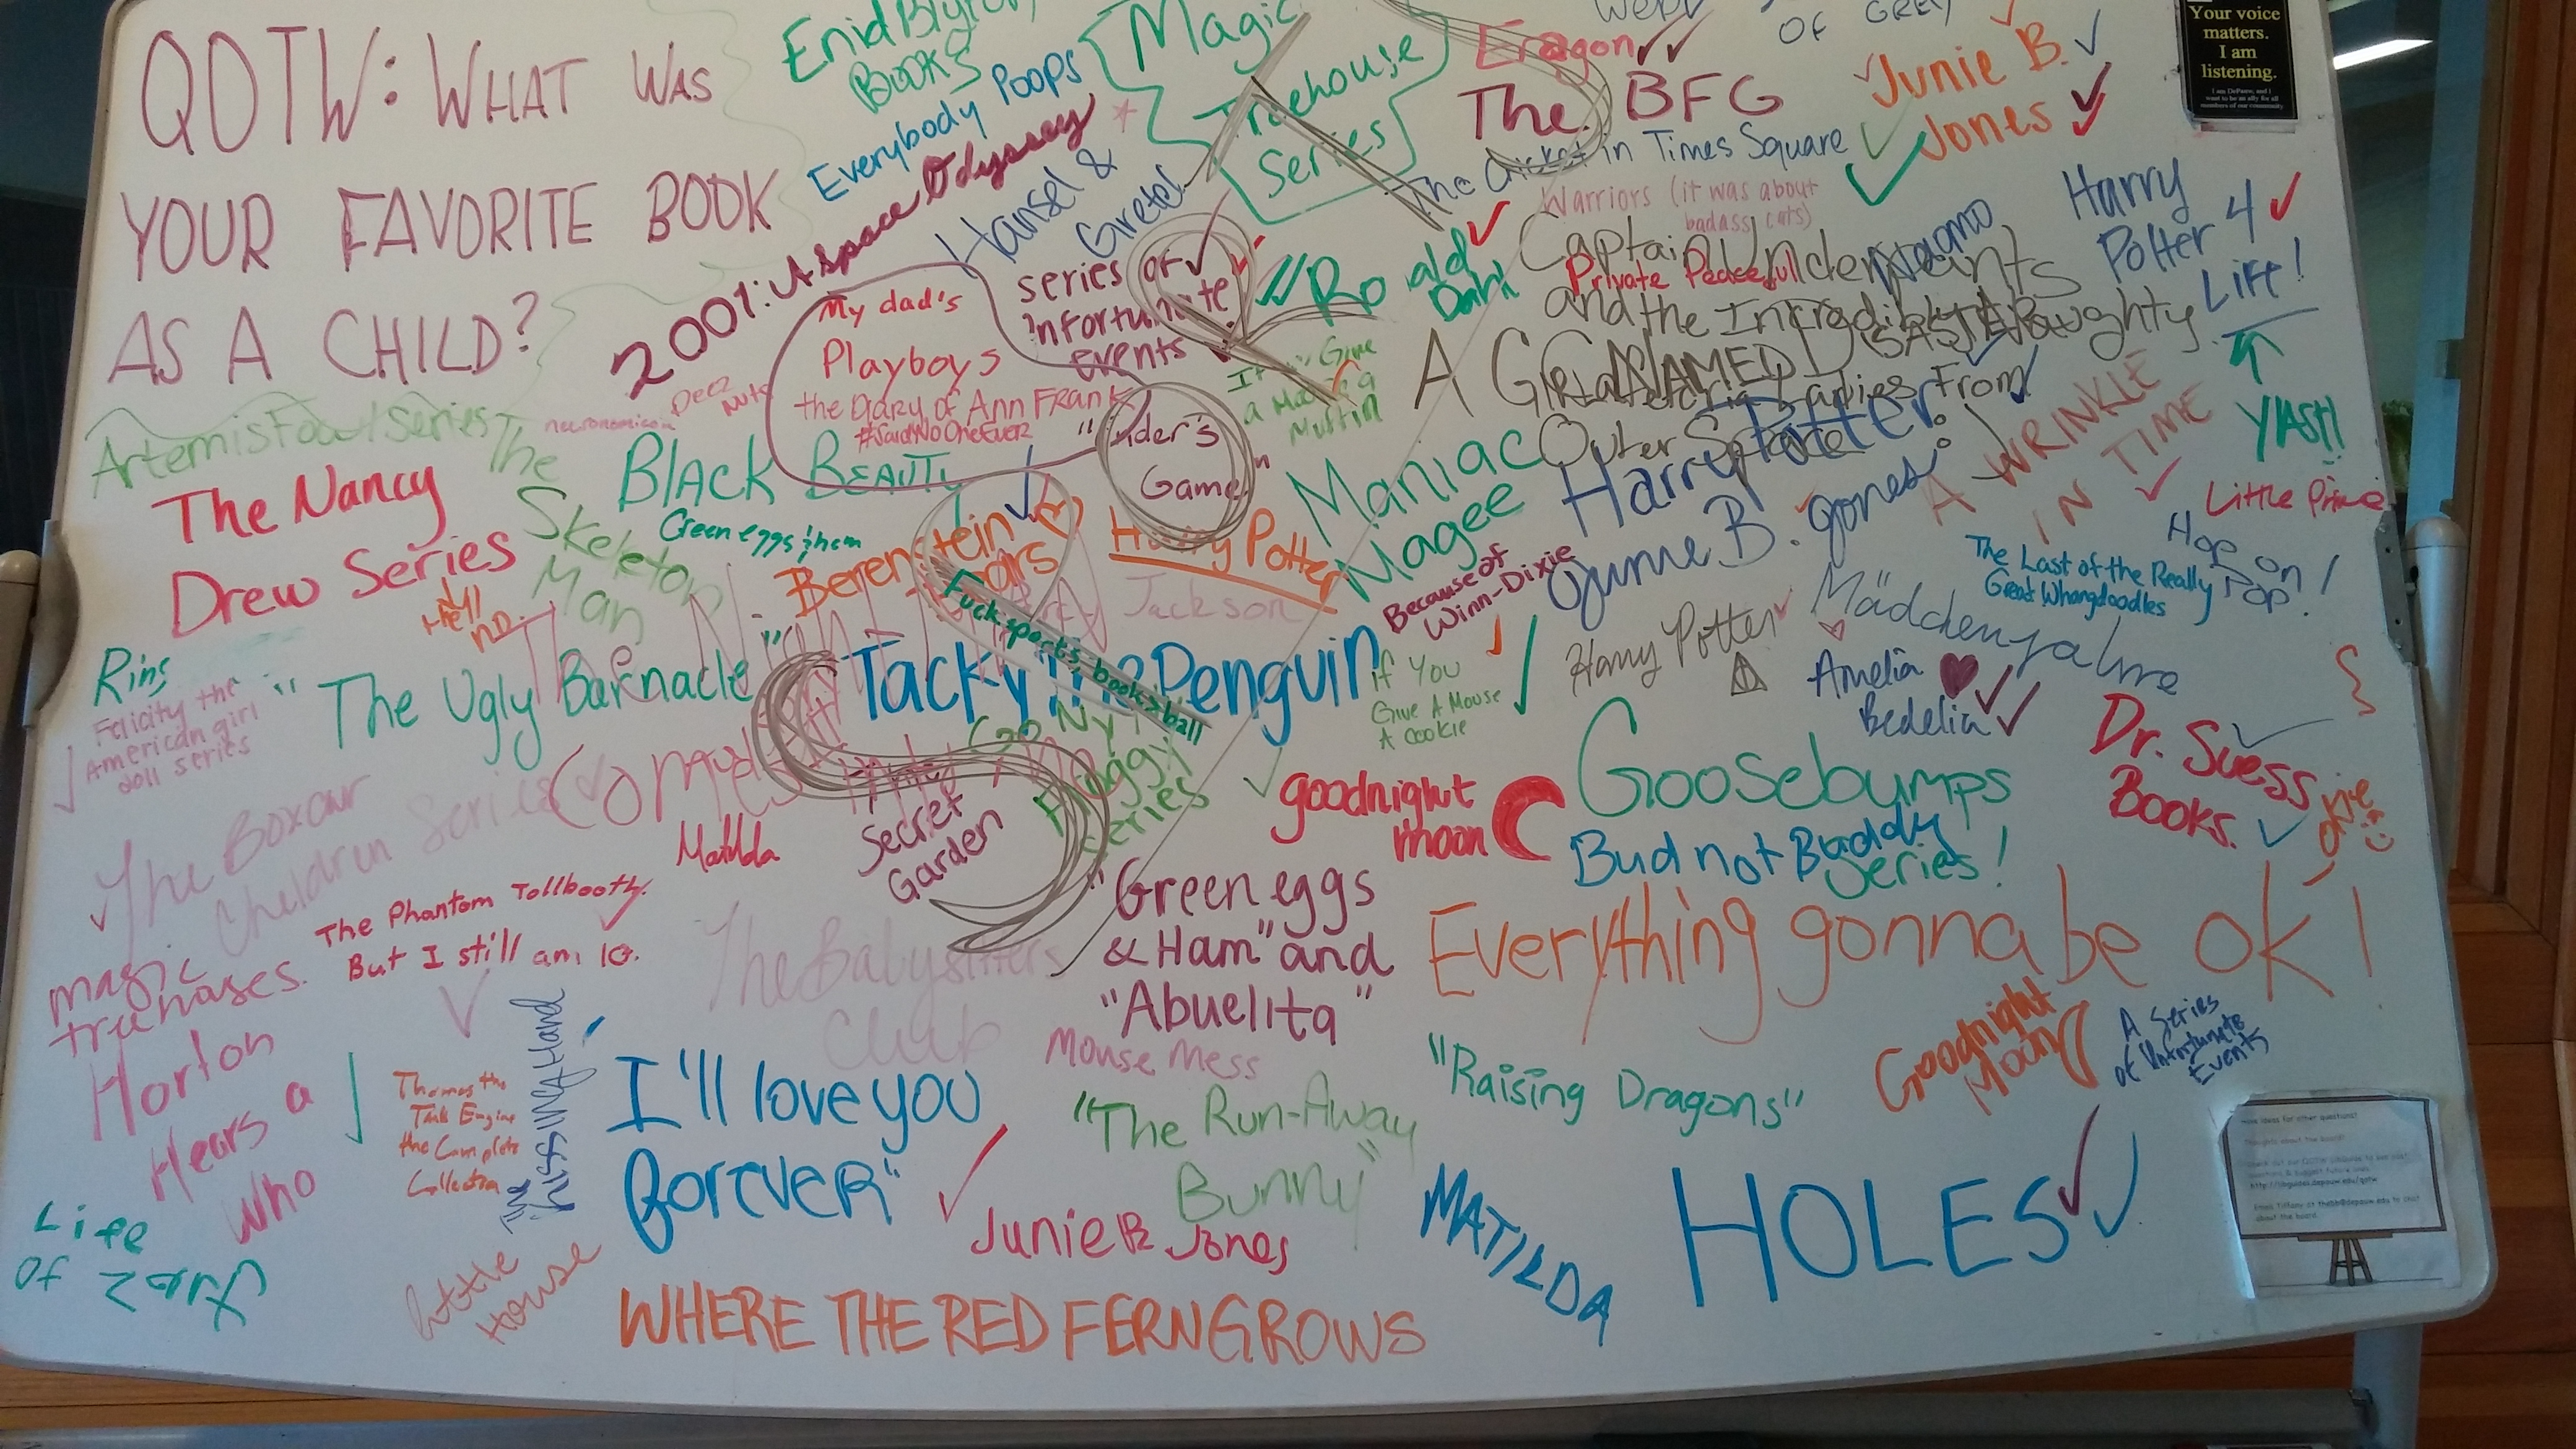 QOTW: WHAT WAS
YOUR FAVORITE BOOK
AS A CHILD?
Enid Blyton
BOOKS
Everybody Poops
2001: A Space Odyssey
Hansel &
Gretel
Magic
Treehouse
Series
OF GREY
Eragon
The BFG
Junie B.
Jones
The Cricket in Times Square
Warriors (it was about
badass cats)
Your voice
matters.
I am
listening.
I am DePauw, and I
want to be an ally for all
members of our community
Harry
Potter 4
Life!
YASH!
Captain Underpants
and the Incredibly Naughty
From
Outer Space
Private Peaceful
A GIRL NAMED DISASTER
series of
unfortunate
events
Roald
Dahl
My dad's
Playboys
the Diary of Ann FRANK
#SaidNoOneEver
Deez
Nuts
necronomicon
If You Give
a Moose a
Muffin
"Ender's
Game"
Artemis Fowl series
The
Skeleton
Man
The Nancy
Drew Series
Hell
no
BLACK BEAUTY
Green eggs & ham
Berenstein
Bears
Harry Potter
Maniac
Magee
Harry Potter
Junie B. Jones
A WRINKLE
IN TIME
Little Prince
Hop on
Pop!
The Last of the Really
Great Whangdoodles
Because of
Winn-Dixie
Percy Jackson
Fuck sports, books > ball
Tacky The Penguin
If You
Give A Mouse
A Cookie
Harry Potter
Mäddenjahre
Amelia
Bedelia
Ring
Felicity the
American girl
doll series
"The Ugly Barnacle"
The Boxcar
Cheldrun Series
Matilda
Secret
Garden
Froggy
Series
goodnight
moon
GOOSebumps
Series!
Bud not Buddy
Dr. Suess
Books.
okie
The Phantom Tollbooth.
But I still am 10.
magic
treehases.
The Babysitters
Club
"Green eggs
& Ham" and
"Abuelita"
Everything gonna be ok!
Horton
Hears a
Who
Thomas the
Tank Engine
the Complete
Collection
The Kissing Hand
I'll love you
forever"
Mouse Mess
"The Run-Away
Bunny"
"Raising Dragons"
Goodnight
Moon
A Series
of Unfortunate
Events
Life
Of Zarf
Little
House
Junie B Jones
MATILDA
HOLES
WHERE THE RED FERN GROWS
Have ideas for other questions?
Thoughts about the board?
http://libguides.depauw.edu/qotw
about the board.